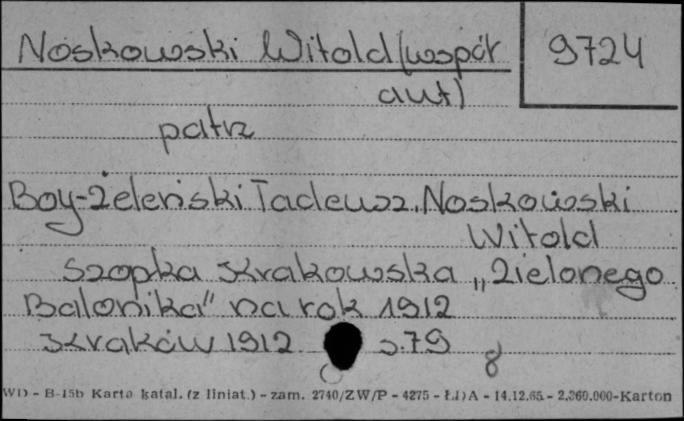 Noskowski Witold (współ
aut)
9724
patrz
Boy-Żeleński Tadeusz, Noskowski
Witold
Szopka Krakowska „Zielonego
Balonika" na rok 1912
Kraków 1912 s. 79
8
WD - B-15b Karta katal. (z liniat.) - zam. 2740/ZW/P - 4275 - ŁDA - 14.12.65 - 2.360.000-Karton